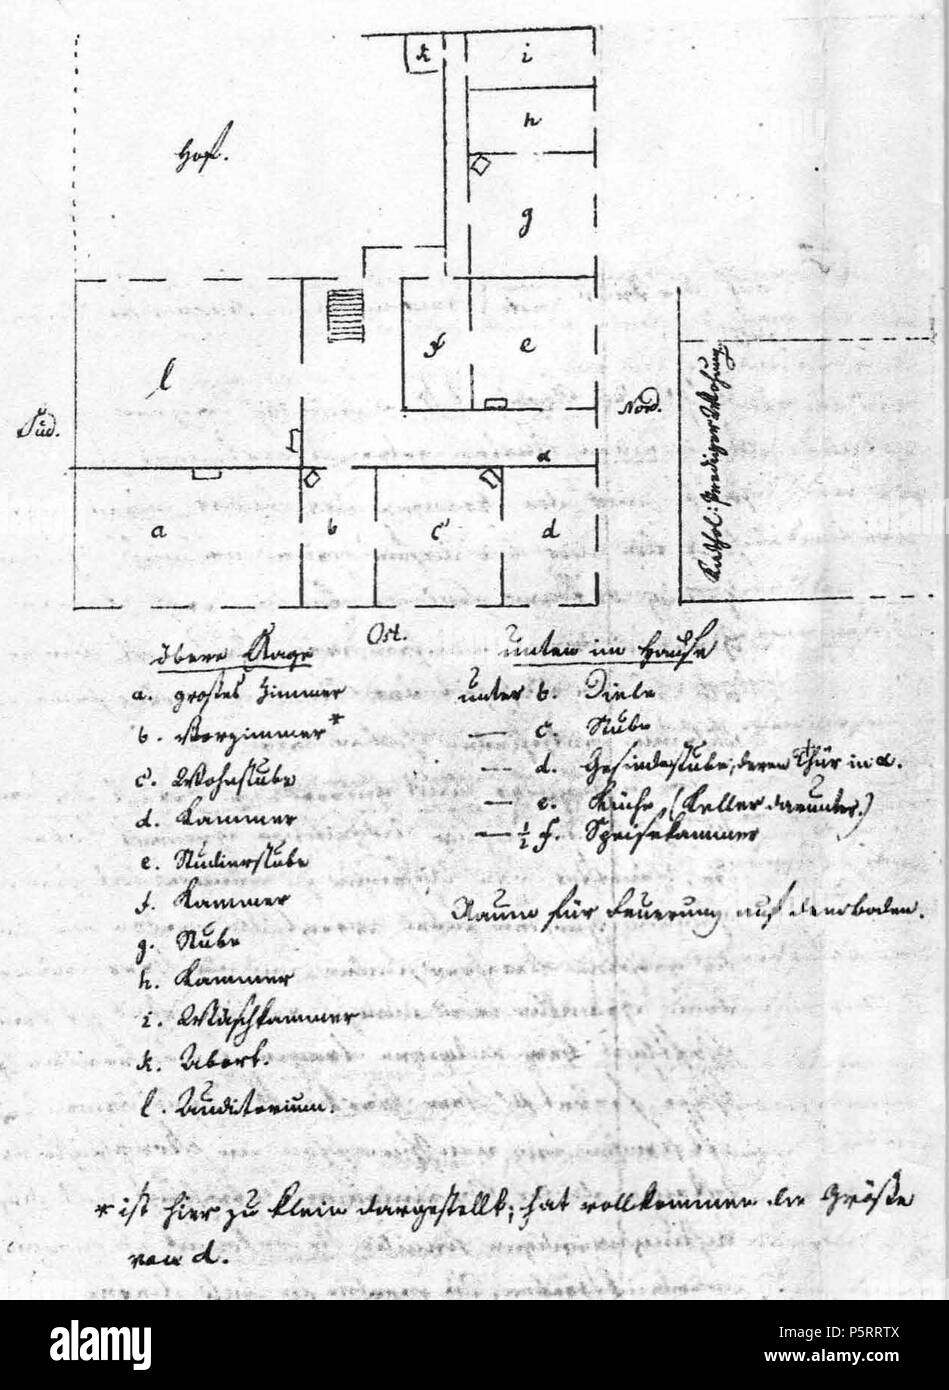 k
i
Hof.
h
g
f
e
l
Süd.
Nord.
Kathol: Prediger Wohnung.
α
a
b
c
d
Ost.
obere Etage
a. großes Zimmer
b. Vorzimmer*
c. Wohnstube
d. Kammer
e. Studierstube
f. Kammer
g. Stube
h. Kammer
i. Waschkammer
k. Abort.
l. Auditorium.
unten im Hause
unter b. Diele
— c. Stube
— d. Gesindestube, deren Thür in α.
— e. Küche, (Keller darunter.)
— ½ f. Speisekammer
Raum für Feuerung auf dem Boden.
* ist hier zu klein dargestellt; hat vollkommen die Größe
von d.
alamy
Image ID: P5RRTX
www.alamy.com